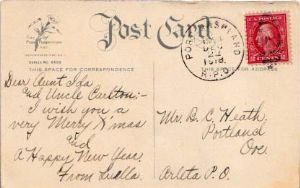 Post Card
THIS SPACE FOR CORRESPONDENCE
THIS SPACE FOR ADDRESS
R.P.O.
Dear Aunt Ida
and Uncle Carlton:-
I wish you a
very Merry X'mas
and
A Happy New Year.
From Luella.
Mr. D. C. Heath,
Portland
Ore.
Arleta P.O.